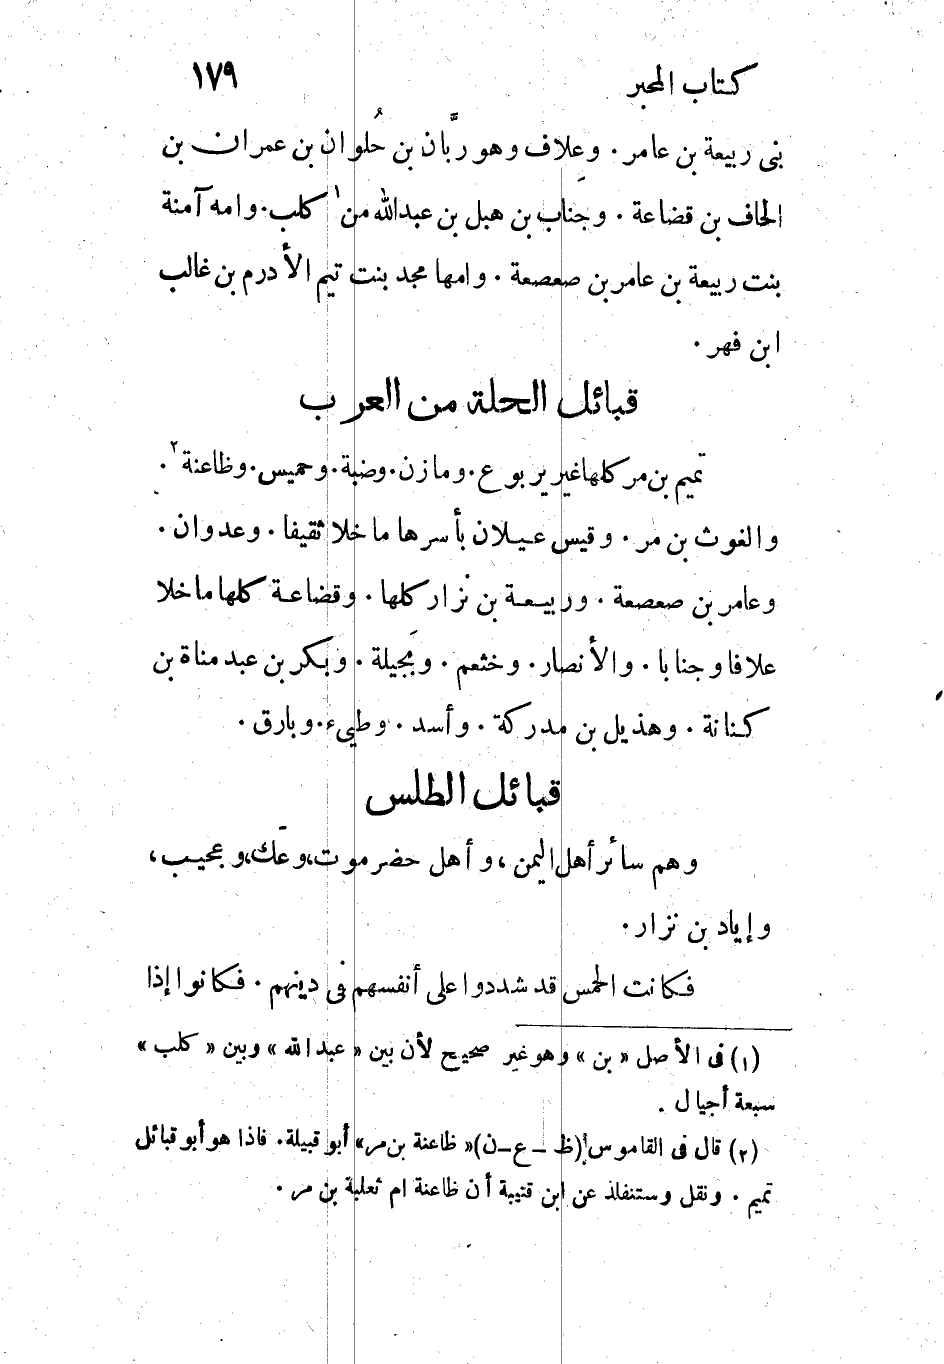 كتاب المحبر ١٧٩
بنى ربيعة بن عامر . وعِلاف وهو ربَّان بن حُلوان بن عمران بن
الحاف بن قضاعة . وجناب بن هبل بن عبدالله من١ كلب . وامه آمنة
بنت ربيعة بن عامر بن صعصعة . وامها مجد بنت تيم الأدرم بن غالب
ابن فهر .
قبائل الحلة من العرب
تميم بن مر كلها غير يربوع . ومازن . وضبة . وحميس . وظاعنة٢ .
والغوث بن مر . وقيس عيلان بأسرها ما خلا ثقيفا . وعدوان .
وعامر بن صعصعة . وربيعة بن نزار كلها . وقضاعة كلها ما خلا
علافا وجنابا . والأنصار . وخثعم . وبَجيلة . وبكر بن عبد مناة بن
كنانة . وهذيل بن مدركة . وأسد . وطيىء . وبارق .
قبائل الطلس
وهم سائر أهل اليمن ، وأهل حضرموت ، وعَك ، وعجيب ،
وإياد بن نزار .
فكانت الحمس قد شددوا على أنفسهم فى دينهم . فكانوا إذا
(١) فى الأصل « بن » وهو غير صحيح لأن بين « عبد الله » وبين « كلب »
سبعة أجيال .
(٢) قال فى القاموس (ظ – ع – ن) « ظاعنة بن مر » أبو قبيلة . فاذا هو أبو قبائل
تميم . ونقل وستنفلذ عن ابن قتيبة أن ظاعنة ام ثعلبة بن مر .